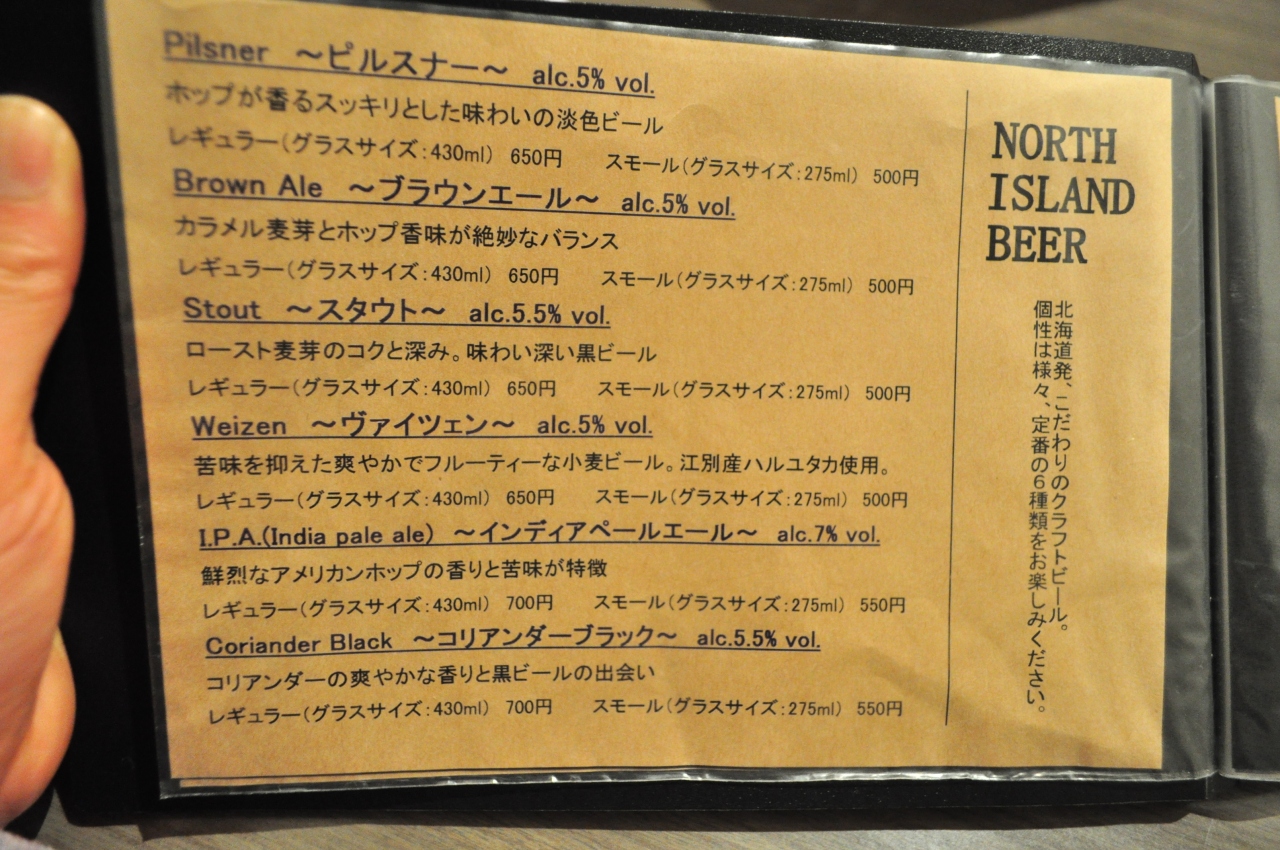 Pilsner ～ピルスナー～ alc.5% vol.
ホップが香るスッキリとした味わいの淡色ビール
レギュラー(グラスサイズ:430ml) 650円 スモール(グラスサイズ:275ml) 500円
Brown Ale ～ブラウンエール～ alc.5% vol.
カラメル麦芽とホップ香味が絶妙なバランス
レギュラー(グラスサイズ:430ml) 650円 スモール(グラスサイズ:275ml) 500円
Stout ～スタウト～ alc.5.5% vol.
ロースト麦芽のコクと深み。味わい深い黒ビール
レギュラー(グラスサイズ:430ml) 650円 スモール(グラスサイズ:275ml) 500円
Weizen ～ヴァイツェン～ alc.5% vol.
苦味を抑えた爽やかでフルーティーな小麦ビール。江別産ハルユタカ使用。
レギュラー(グラスサイズ:430ml) 650円 スモール(グラスサイズ:275ml) 500円
I.P.A.(India pale ale) ～インディアペールエール～ alc.7% vol.
鮮烈なアメリカンホップの香りと苦味が特徴
レギュラー(グラスサイズ:430ml) 700円 スモール(グラスサイズ:275ml) 550円
Coriander Black ～コリアンダーブラック～ alc.5.5% vol.
コリアンダーの爽やかな香りと黒ビールの出会い
レギュラー(グラスサイズ:430ml) 700円 スモール(グラスサイズ:275ml) 550円
NORTH
ISLAND
BEER
北海道発、こだわりのクラフトビール。
個性は様々、定番の6種類をお楽しみください。